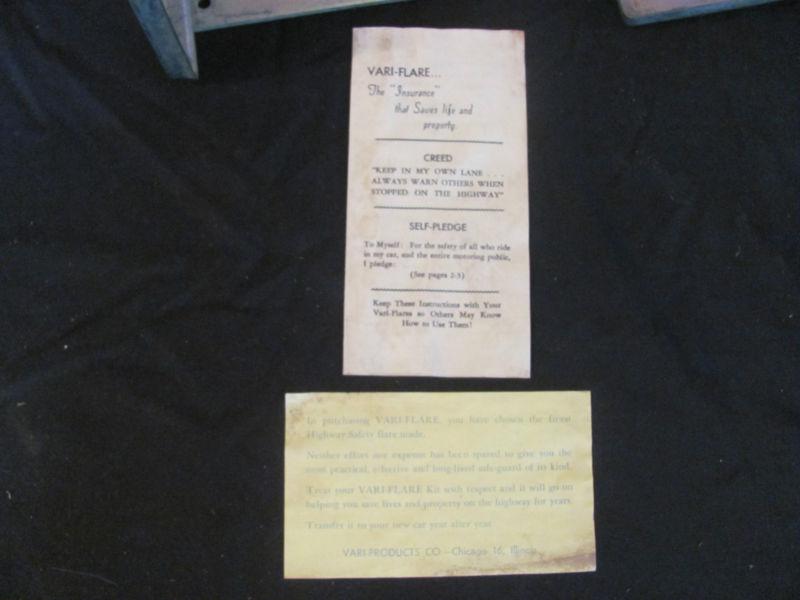 VARI-FLARE...
The "Insurance"
that Saves life and
property.
CREED
"KEEP IN MY OWN LANE . . .
ALWAYS WARN OTHERS WHEN
STOPPED ON THE HIGHWAY"
SELF-PLEDGE
To Myself: For the safety of all who ride
in my car, and the entire motoring public,
I pledge:
(See pages 2-3)
Keep These Instructions with Your
Vari-Flares so Others May Know
How to Use Them!
In purchasing VARI-FLARE, you have chosen the finest
Highway Safety flare made.
Neither effort nor expense has been spared to give you the
most practical, effective and long-lived safe-guard of its kind.
Treat your VARI-FLARE Kit with respect and it will go on
helping you save lives and property on the highway for years.
Transfer it to your new car year after year.
VARI-PRODUCTS CO.—Chicago 16, Illinois